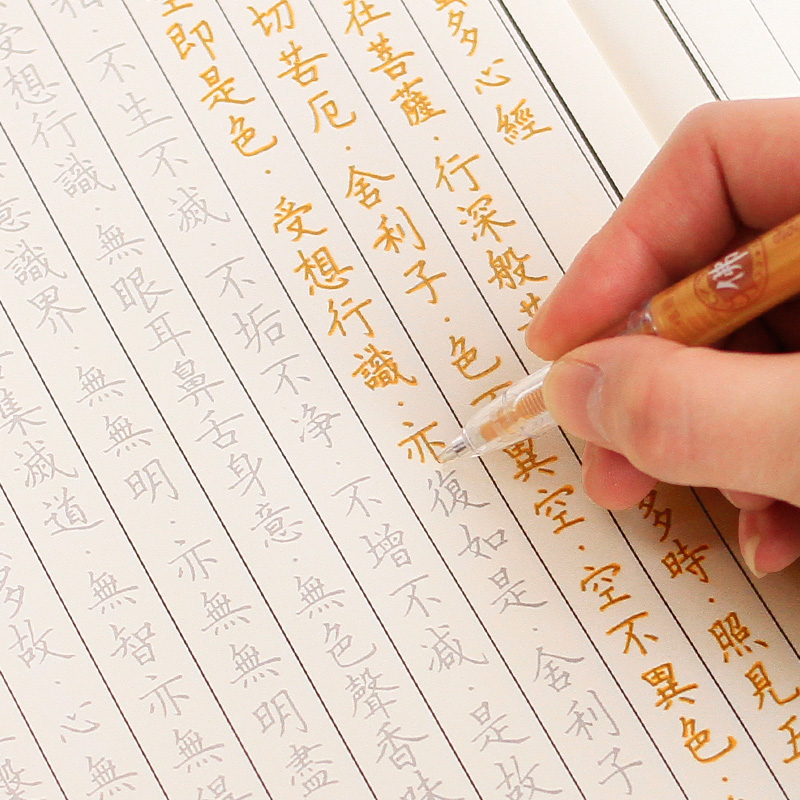 多心經
在菩薩·行深般若
多時·照見五
切苦厄·舍利子·色不異空·空不異色·
即是色·受想行識·亦復如是·舍利子
相·不生不滅·不垢不净·不增不减·是故
受想行識·無眼耳鼻舌身意·無色聲香味
意識界·無無明·亦無無明盡
集滅道·無智亦無得
多故·心無
佛